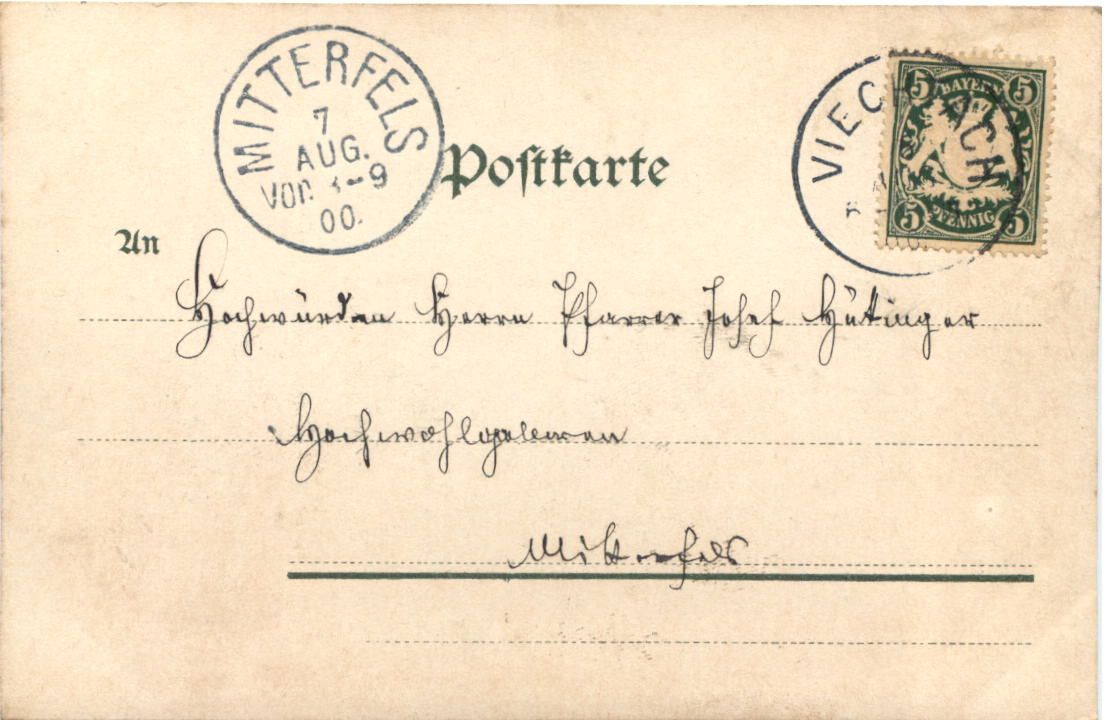 MITTERFELS
7
AUG.
VOR. 8-9
00.
VIECHTACH
5 BAYERN 5
5 PFENNIG 5
Postkarte
An
Hochwürden Herrn Pfarrer Josef Hütinger
Hochwohlgeboren
Mitterfels